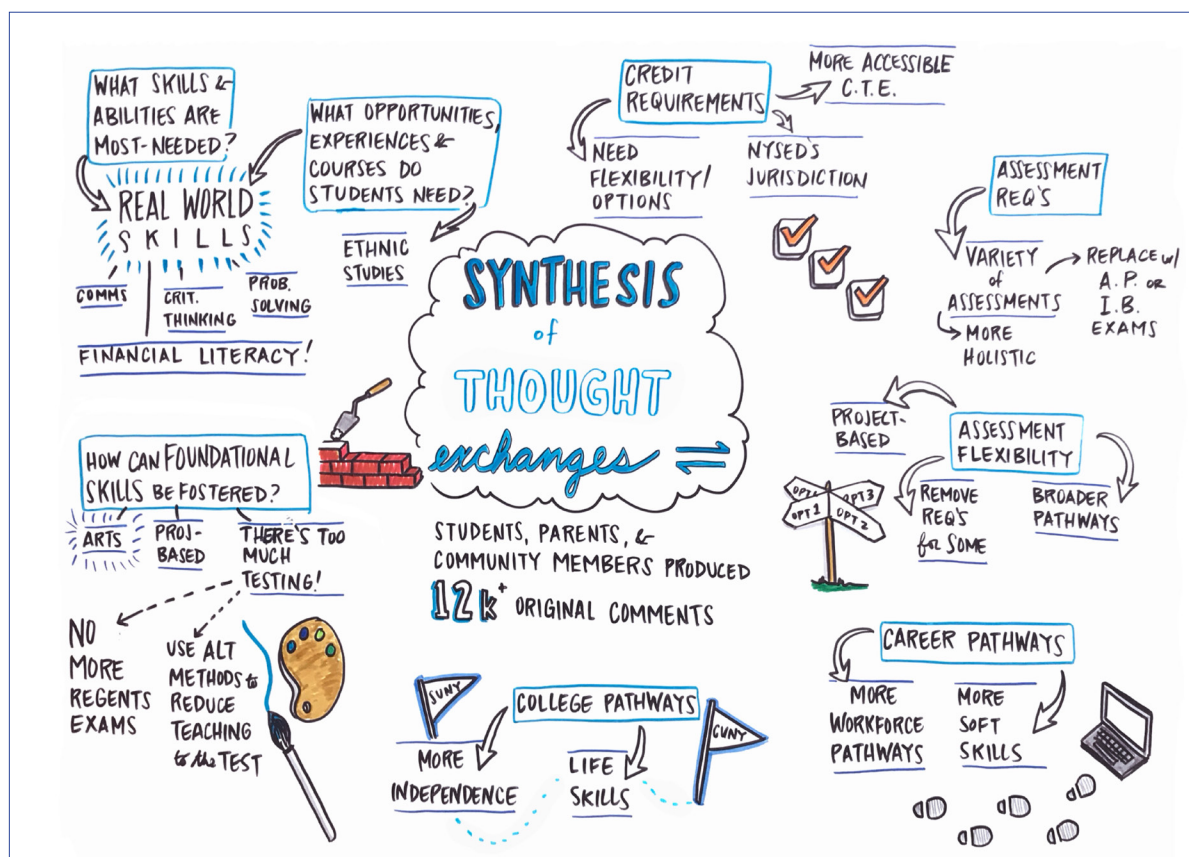 WHAT SKILLS &
ABILITIES ARE
MOST-NEEDED?
REAL WORLD
SKILLS
COMMS
CRIT.
THINKING
PROB.
SOLVING
FINANCIAL LITERACY!
WHAT OPPORTUNITIES,
EXPERIENCES &
COURSES DO
STUDENTS NEED?
ETHNIC
STUDIES
CREDIT
REQUIREMENTS
MORE ACCESSIBLE
C.T.E.
NEED
FLEXIBILITY/
OPTIONS
NYSED'S
JURISDICTION
ASSESSMENT
REQ'S
VARIETY
of
ASSESSMENTS
MORE
HOLISTIC
REPLACE w/
A.P. OR
I.B.
EXAMS
SYNTHESIS
of
THOUGHT
exchanges
STUDENTS, PARENTS, &
COMMUNITY MEMBERS PRODUCED
12k+ ORIGINAL COMMENTS
HOW CAN FOUNDATIONAL
SKILLS BE FOSTERED?
ARTS
PROJ-
BASED
THERE'S TOO
MUCH
TESTING!
NO
MORE
REGENTS
EXAMS
USE ALT
METHODS to
REDUCE
TEACHING
to the TEST
ASSESSMENT
FLEXIBILITY
PROJECT-
BASED
REMOVE
REQ'S
for SOME
BROADER
PATHWAYS
OPT 3
OPT 1
OPT 2
COLLEGE PATHWAYS
SUNY
CUNY
MORE
INDEPENDENCE
LIFE
SKILLS
CAREER PATHWAYS
MORE
WORKFORCE
PATHWAYS
MORE
SOFT
SKILLS